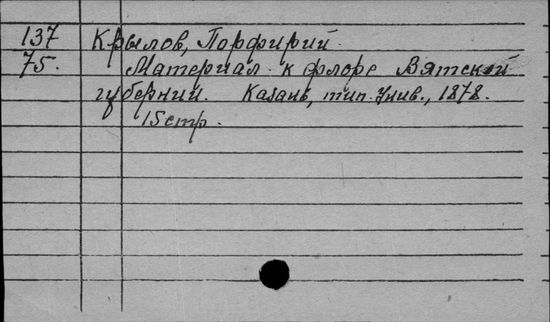 137 Крылов, Порфирий.
75. Материал к флоре Вятской
губерний. Казань, тип. Унив., 1878.
15 стр.